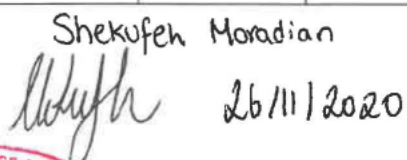 Shekufeh Moradian
26/11/2020